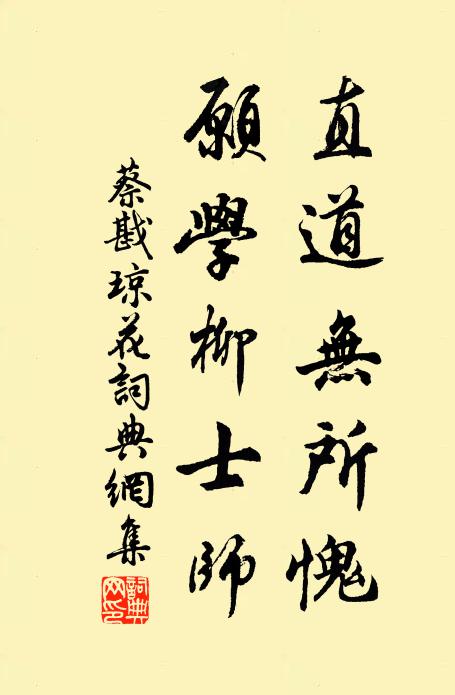 直道無所愧
願學柳士師
蔡戡琼花詞典網集